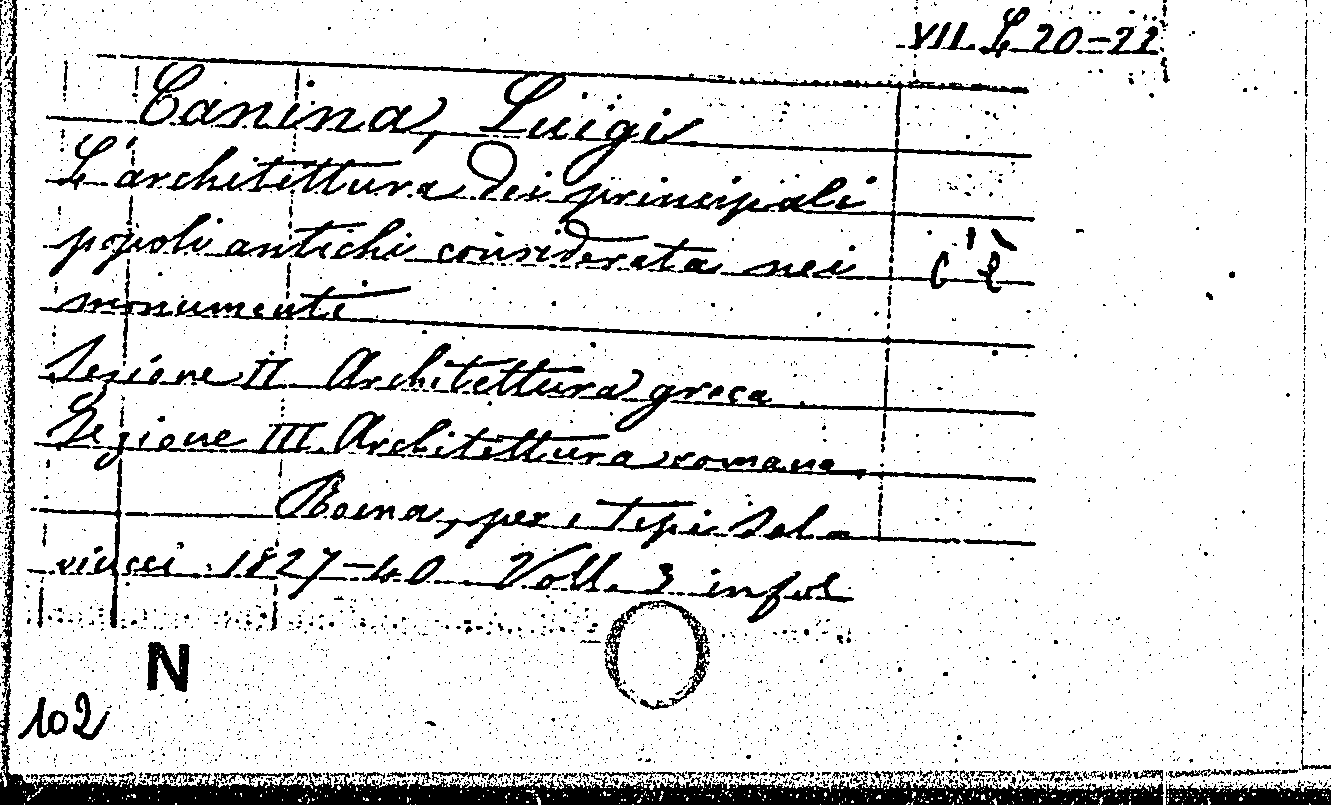 VII. L 20-22
Canina, Luigi
L'architettura dei principali
popoli antichi considerata nei
c'è
monumenti
Sezione II Architettura greca.
Sezione III. Architettura romana.
Roma, per i tipi Sal
viucci 1827-40 Voll. 3 in fol
N
102